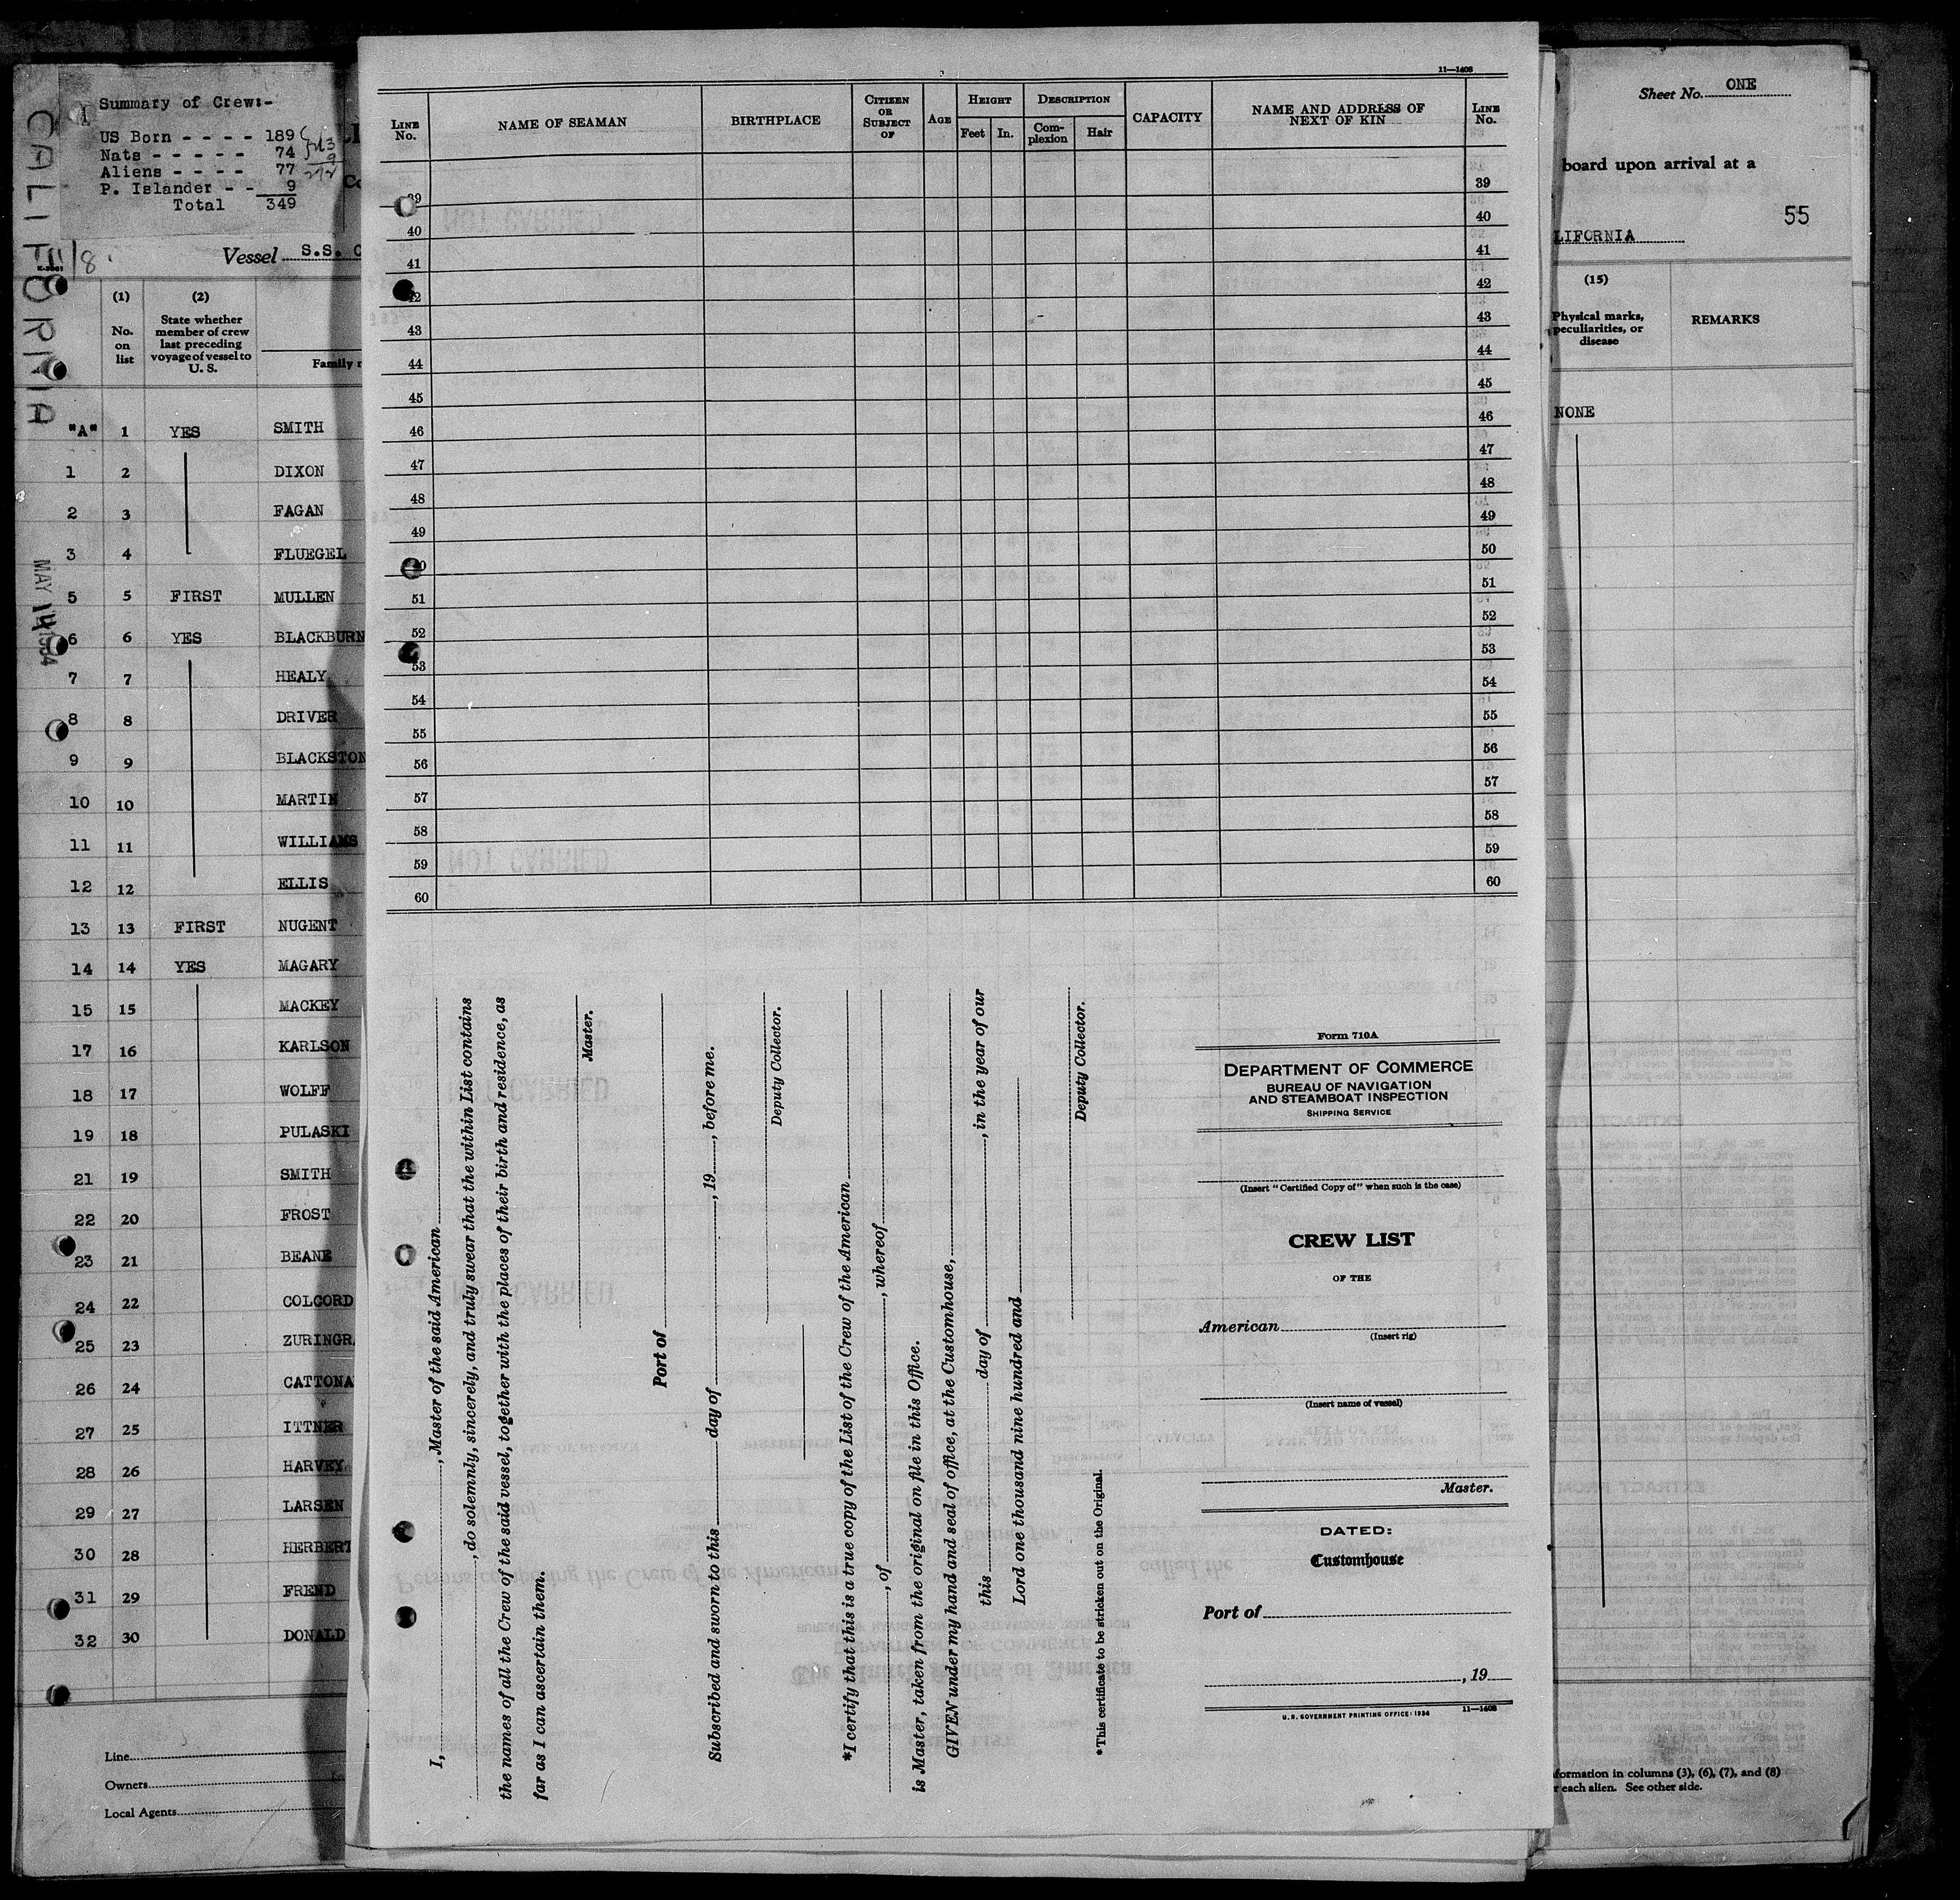 CALIFORNIA
Summary of Crew:-
US Born - - - - 189
Nats - - - - - 74
Aliens - - - - 77
P. Islander - - 9
Total 349
18.
Vessel S.S. C
(1) (2)
No. on list
State whether member of crew last preceding voyage of vessel to U. S.
Family
"A" 1 YES SMITH
1 2 DIXON
2 3 FAGAN
3 4 FLUEGEL
MAY 14 1934
5 5 FIRST MULLEN
6 6 YES BLACKBURN
7 7 HEALY
8 8 DRIVER
9 9 BLACKSTON
10 10 MARTIN
11 11 WILLIAMS
12 12 ELLIS
13 13 FIRST NUGENT
14 14 YES MAGARY
15 15 MACKEY
17 16 KARLSON
18 17 WOLFF
19 18 PULASKI
21 19 SMITH
22 20 FROST
23 21 BEANE
24 22 COLCORD
25 23 ZURINGR
26 24 CATTONA
27 25 ITTNER
28 26 HARVEY
29 27 LARSEN
30 28 HERBERT
31 29 FREND
32 30 DONALD
Line
Owners
Local Agents
11—1408
LINE No.
NAME OF SEAMAN
BIRTHPLACE
CITIZEN OR SUBJECT OF
AGE
HEIGHT
Feet In.
DESCRIPTION
Complexion Hair
CAPACITY
NAME AND ADDRESS OF NEXT OF KIN
LINE No.
39 39
40 40
41 41
42 42
43 43
44 44
45 45
46 46
47 47
48 48
49 49
50 50
51 51
52 52
53 53
54 54
55 55
56 56
57 57
58 58
59 59
60 60
I, , Master of the said American
, do solemnly, sincerely, and truly swear that the within List contains
the names of all the Crew of the said vessel, together with the places of their birth and residence, as
far as I can ascertain them.
Master.
Port of
Subscribed and sworn to this day of , 19 , before me.
Deputy Collector.
*I certify that this is a true copy of the List of the Crew of the American
, of , whereof
is Master, taken from the original on file in this Office.
GIVEN under my hand and seal of office, at the Customhouse,
this day of , in the year of our
Lord one thousand nine hundred and
Deputy Collector.
*This certificate to be stricken out on the Original.
Form 710A
DEPARTMENT OF COMMERCE
BUREAU OF NAVIGATION
AND STEAMBOAT INSPECTION
SHIPPING SERVICE
(Insert "Certified Copy of" when such is the case)
CREW LIST
OF THE
American
(Insert rig)
(Insert name of vessel)
Master.
DATED:
Customhouse
Port of
, 19
U.S. GOVERNMENT PRINTING OFFICE: 1934 11—1408
Sheet No. ONE
board upon arrival at a
55
LIFORNIA
(15)
Physical marks, peculiarities, or disease
REMARKS
NONE
formation in columns (3), (6), (7), and (8)
r each alien. See other side.